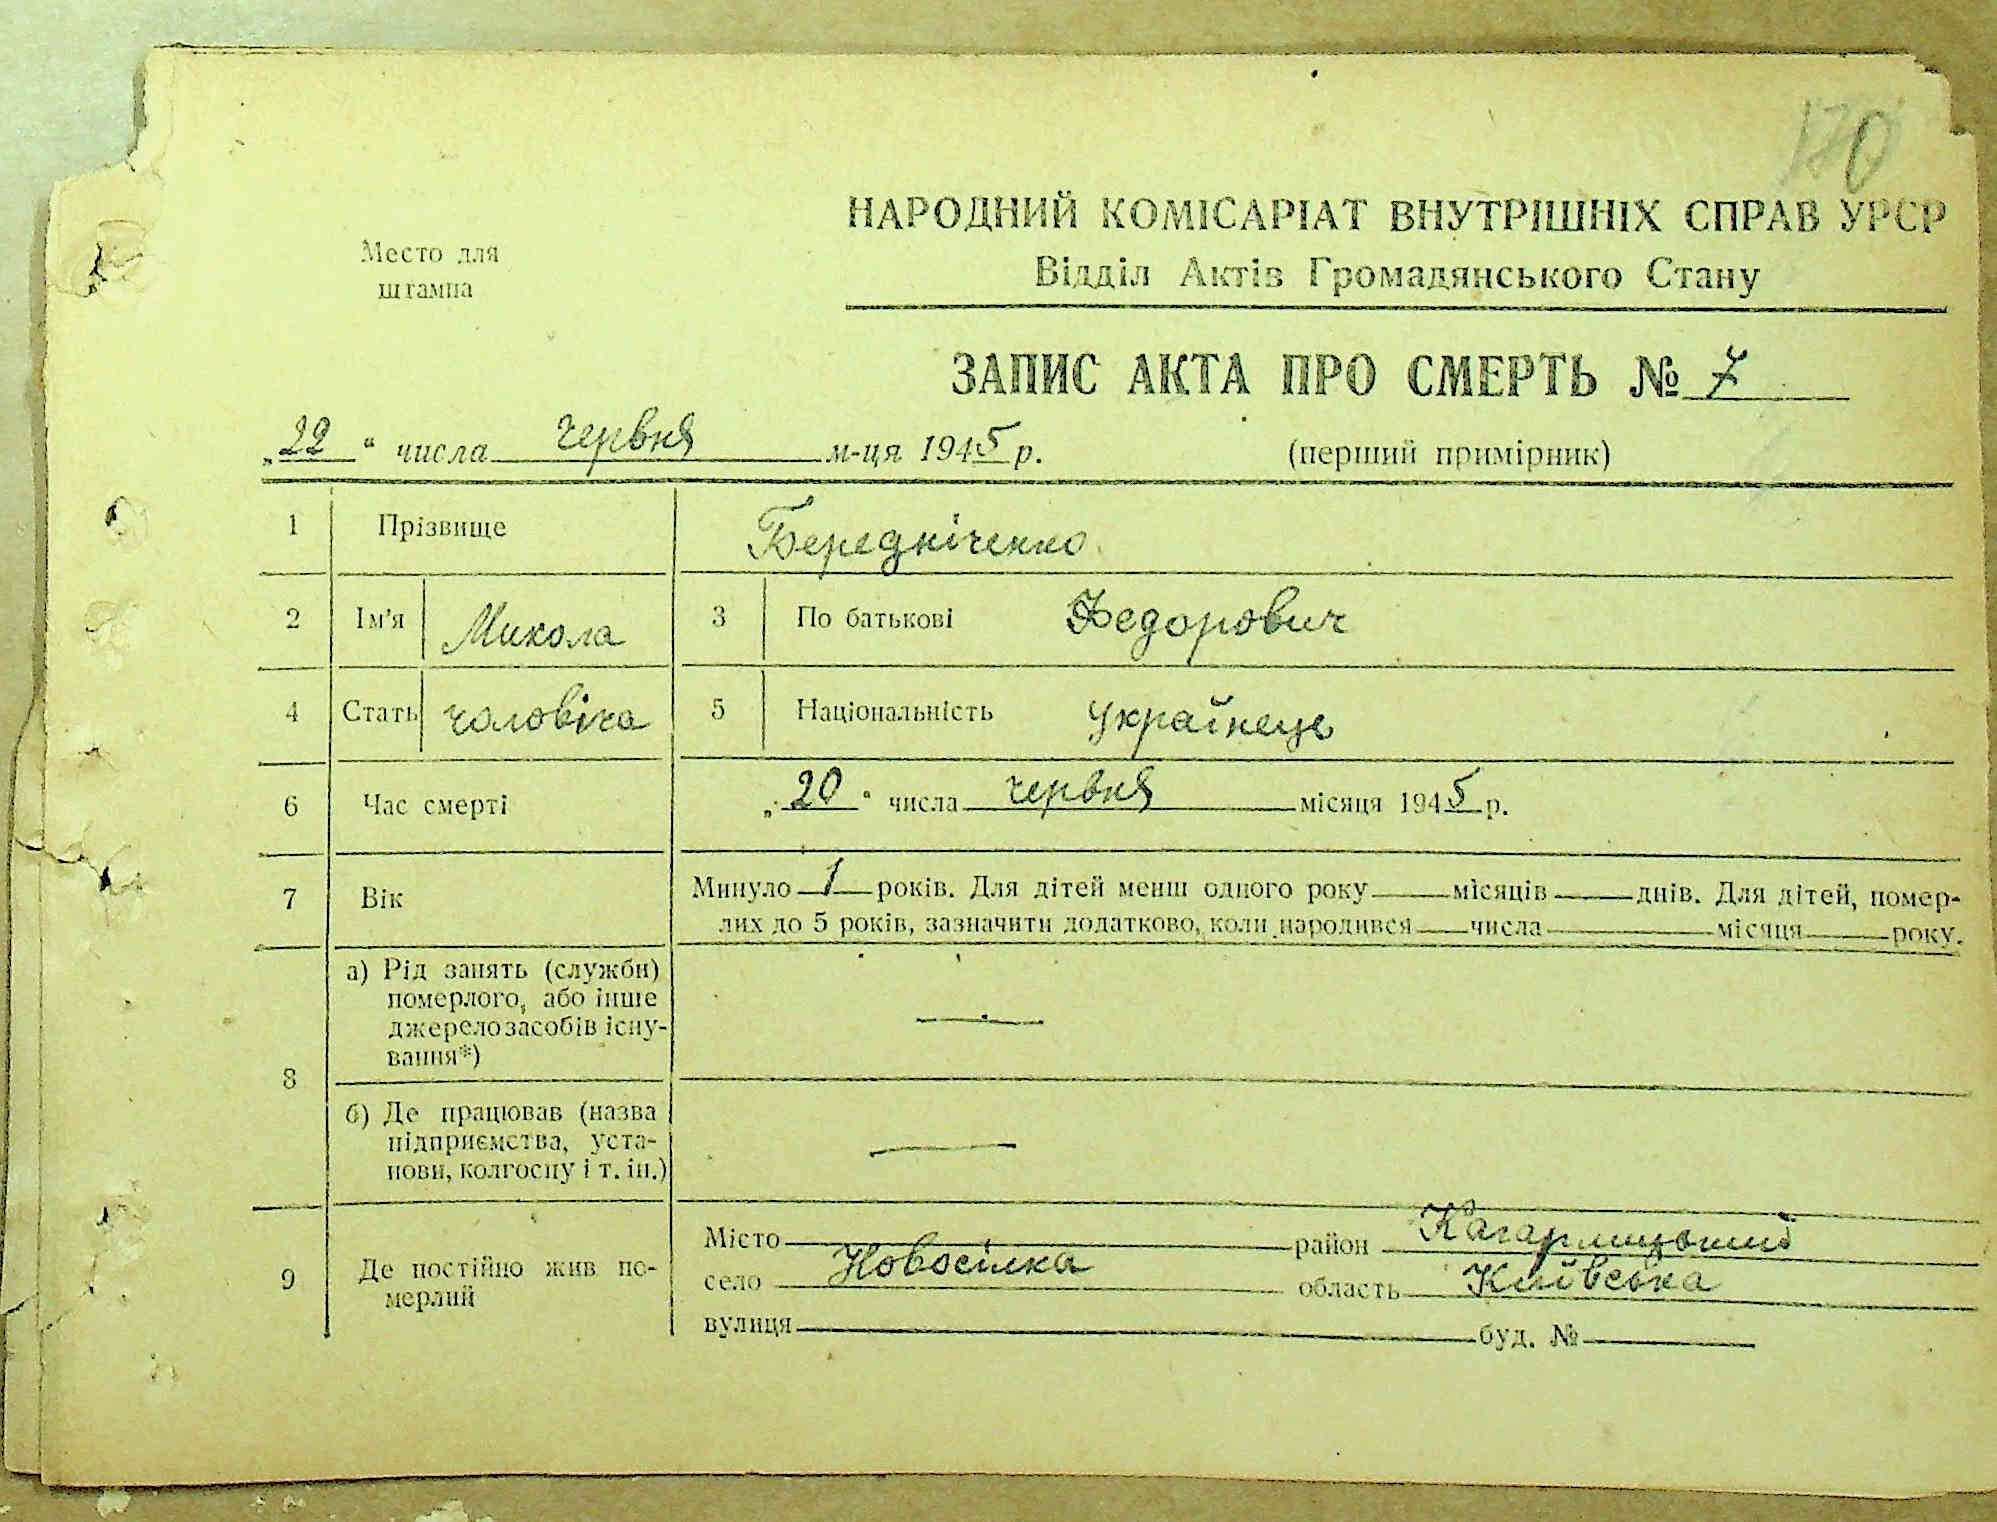 170
НАРОДНИЙ КОМІСАРІАТ ВНУТРІШНІХ СПРАВ УРСР
Место для
штампа
Відділ Актів Громадянського Стану
ЗАПИС АКТА ПРО СМЕРТЬ № 7
„22“ числа червня м-ця 1945 р.
(перший примірник)
1 Прізвище Бередніченко
2 Ім'я Микола 3 По батькові Федорович
4 Стать чоловіча 5 Національність Українець
6 Час смерті „20“ числа червня місяця 1945 р.
7 Вік Минуло 1 років. Для дітей менш одного року — місяців — днів. Для дітей, помер-
лих до 5 років, зазначити додатково, коли народився — числа — місяця — року.
8 а) Рід занять (служби)
померлого, або інше
джерело засобів існу-
вання*) —
б) Де працював (назва
підприємства, уста-
нови, колгоспу і т. ін.) —
9 Де постійно жив по-
мерлий
Місто — район Кагарлицький
село Новосілка область Київська
вулиця — буд. № —